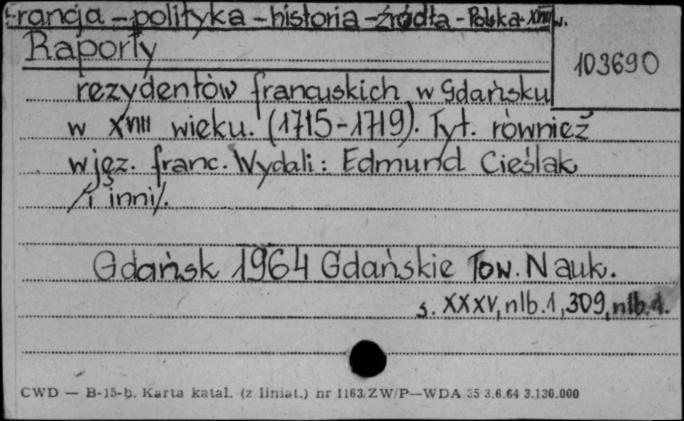 Francja - polityka - historia - źródła - Polska - XVIII w.
Raporty
103690
rezydentów francuskich w Gdańsku
w XVIII wieku. (1715-1719). Tyt. również
w jęz. franc. Wydali: Edmund Cieślak
/i inni/.
Gdańsk 1964 Gdańskie Tow. Nauk.
s. XXXV, nlb. 1, 309, nlb. 1.
CWD — B-15-b. Karta katal. (z liniat.) nr 1163/ZW/P—WDA 35 3.6.64 3.130.000